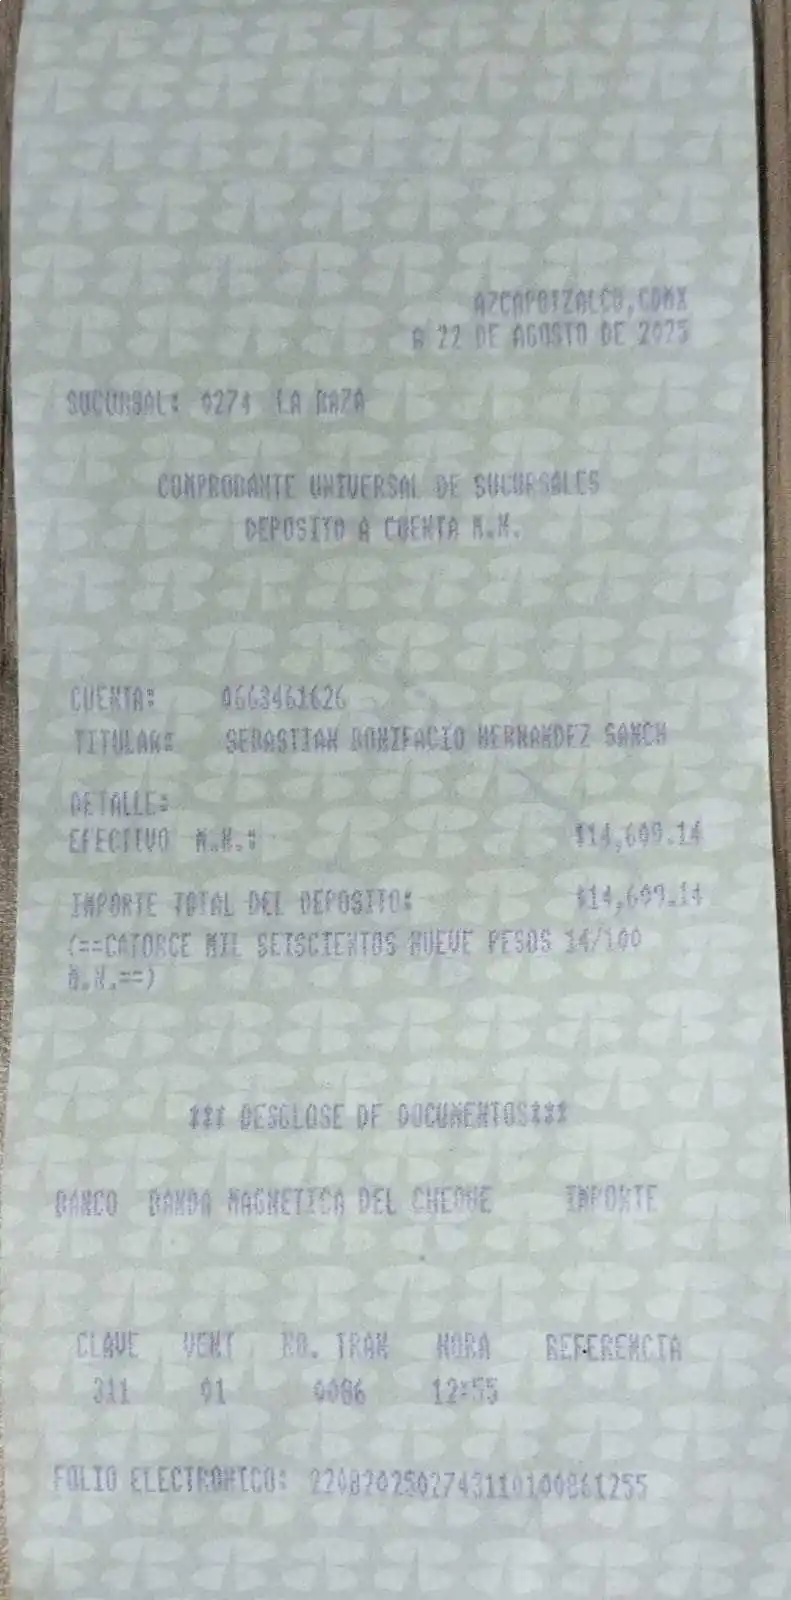 AZCAPOTZALCO,CDMX
A 22 DE AGOSTO DE 2025
SUCURSAL: 0274 LA RAZA
COMPROBANTE UNIVERSAL DE SUCURSALES
DEPOSITO A CUENTA M.N.
CUENTA: 0663461626
TITULAR: SEBASTIAN BONIFACIO HERNANDEZ SANCH
DETALLE:
EFECTIVO M.N.: $14,609.14
IMPORTE TOTAL DEL DEPOSITO: $14,609.14
(==CATORCE MIL SEISCIENTOS NUEVE PESOS 14/100
M.N.==)
*** DESGLOSE DE DOCUMENTOS***
BANCO BANDA MAGNETICA DEL CHEQUE IMPORTE
CLAVE VENT NO. TRAN HORA REFERENCIA
311 01 0086 12:55
FOLIO ELECTRONICO: 2208202502743110100861255